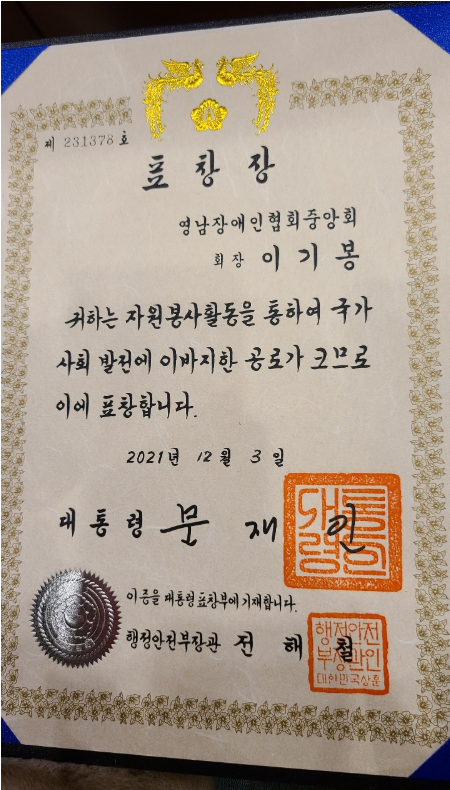 제 231378 호
표 창 장
영남장애인협회중앙회
회장 이 기 봉
귀하는 자원봉사활동을 통하여 국가
사회 발전에 이바지한 공로가 크므로
이에 표창합니다.
2021년 12월 3일
대통령 문 재 인
대통령의인
이 증을 대통령표창부에 기재합니다.
행정안전부장관 전 해 철
행정안전
부장관인
대한민국상훈